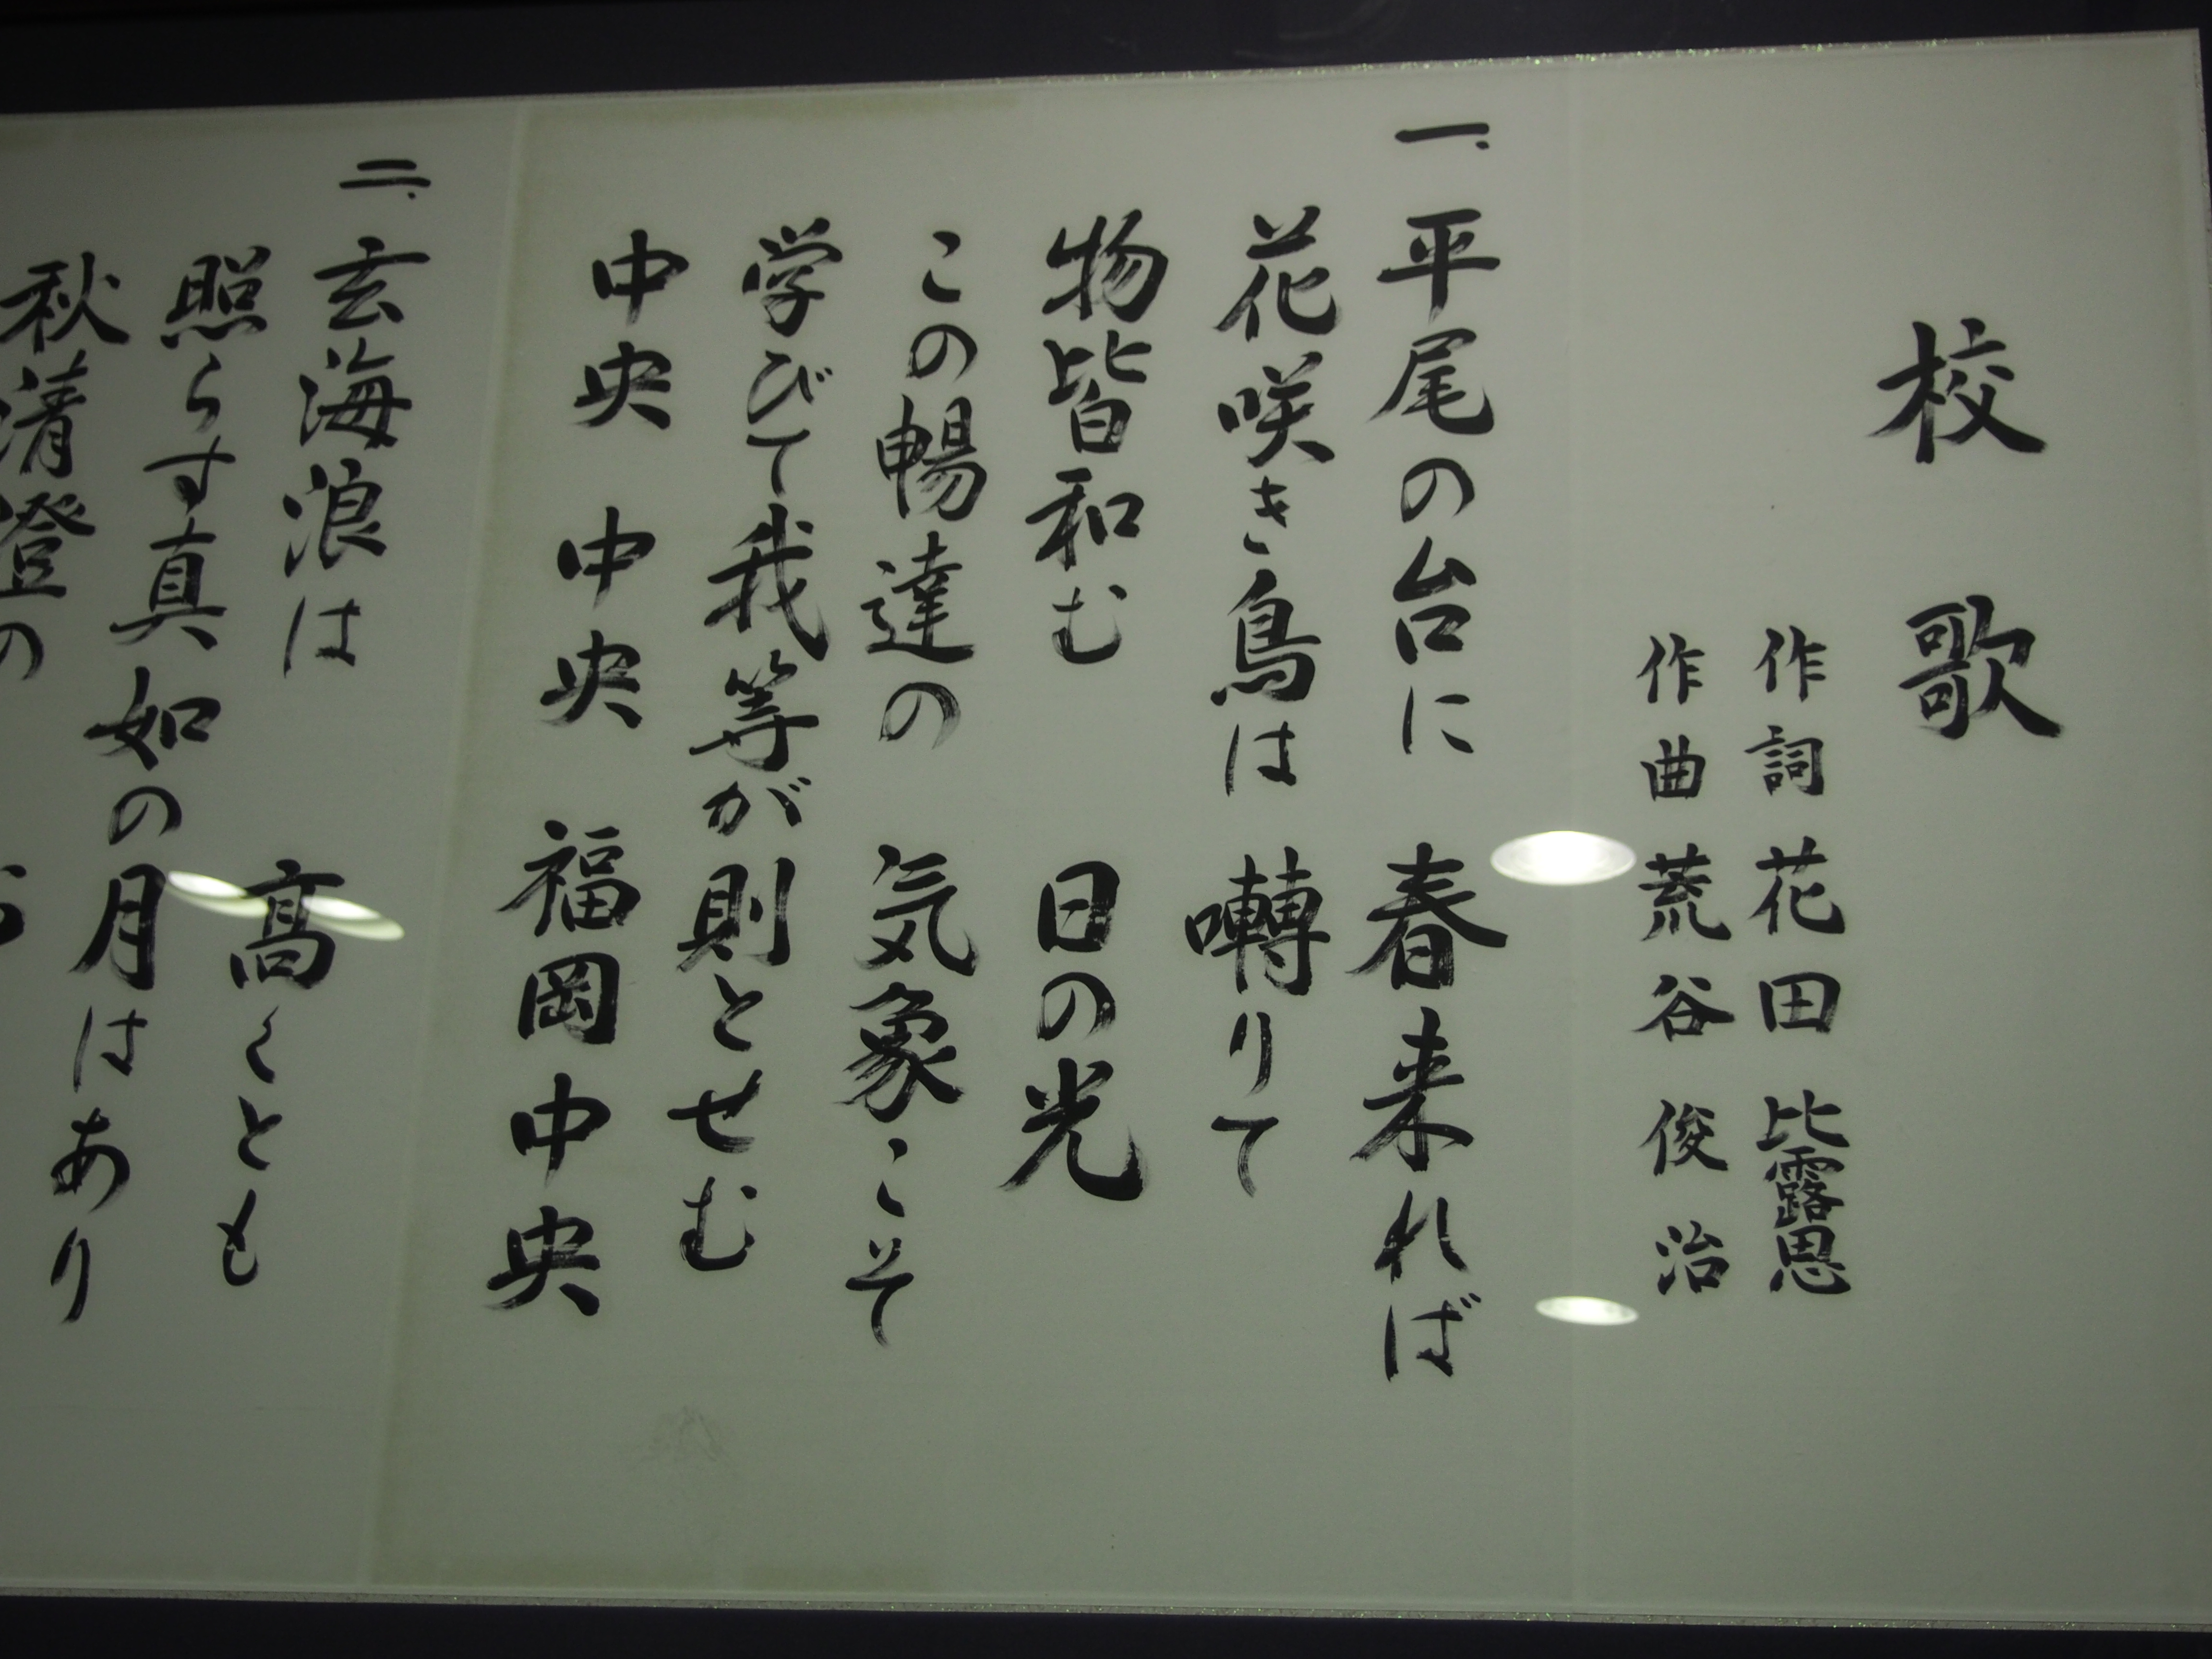 校歌
作詞 花田 比露思
作曲 荒谷 俊治
一、平尾の台に 春来れば
花咲き鳥は 囀りて
物皆和む 日の光
この暢達の 気象こそ
学びて我等が則とせむ
中央 中央 福岡中央
二、玄海浪は 高くとも
照らす真如の月はあり
秋清澄の